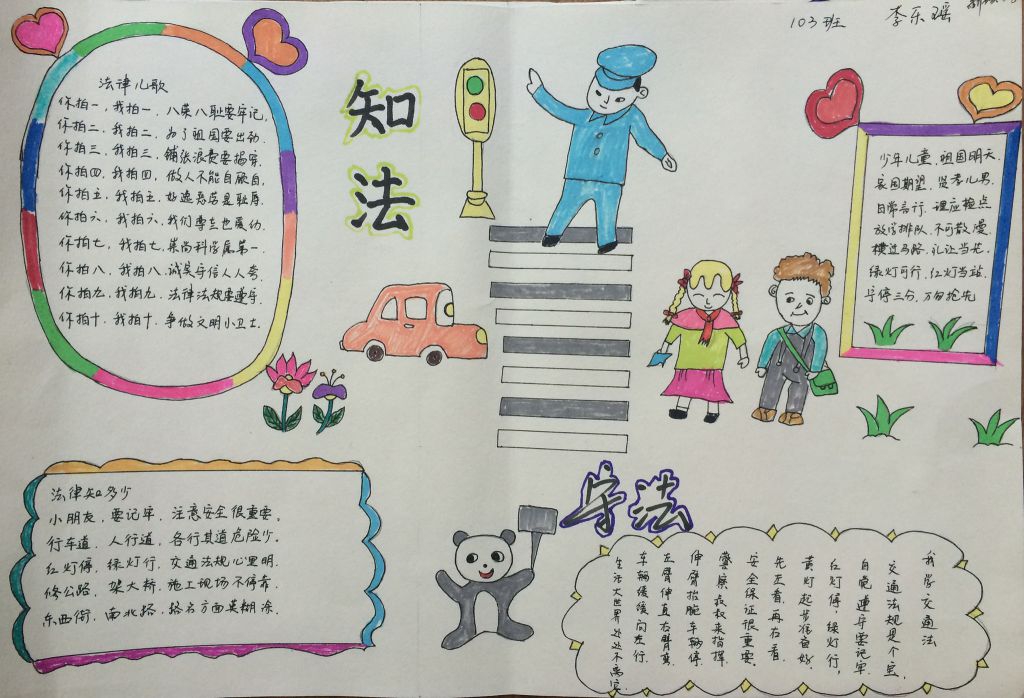 103班 李乐瑶
知法
法律儿歌
你拍一，我拍一，八荣八耻要牢记，
你拍二，我拍二，为了祖国要出动．
你拍三，我拍三，铺张浪费要揭穿．
你拍四，我拍四，做人不能自顾自．
你拍五，我拍五，好逸恶劳是耻辱．
你拍六，我拍六，我们尊老也爱幼．
你拍七，我拍七，崇尚科学属第一．
你拍八，我拍八，诚实守信人人夸．
你拍九，我拍九，法律法规要遵守．
你拍十，我拍十，争做文明小卫士．
少年儿童，祖国明天．
家国期望，贤孝儿男．
日常言行，理应检点
放学排队，不可散漫
横过马路，礼让当先．
绿灯可行，红灯当站．
宁停三分，万勿抢先
法律知多少
小朋友，要记牢，注意安全很重要。
行车道，人行道，各行其道危险少。
红灯停，绿灯行，交通法规心里明．
修公路，架大桥，施工现场不停靠．
东西街，南北路，络方方面莫糊涂．
守法
我学交通法
交通法规是个宝，
自觉遵守要记牢．
红灯停，绿灯行，
黄灯起步依旧好．
先左看，再右看，
安全保证很重要．
警察叔叔来指挥，
伸臂抬腕车辆停．
左臂伸直右臂摆，
车辆缓缓向左行．
生活大世界处处不离它